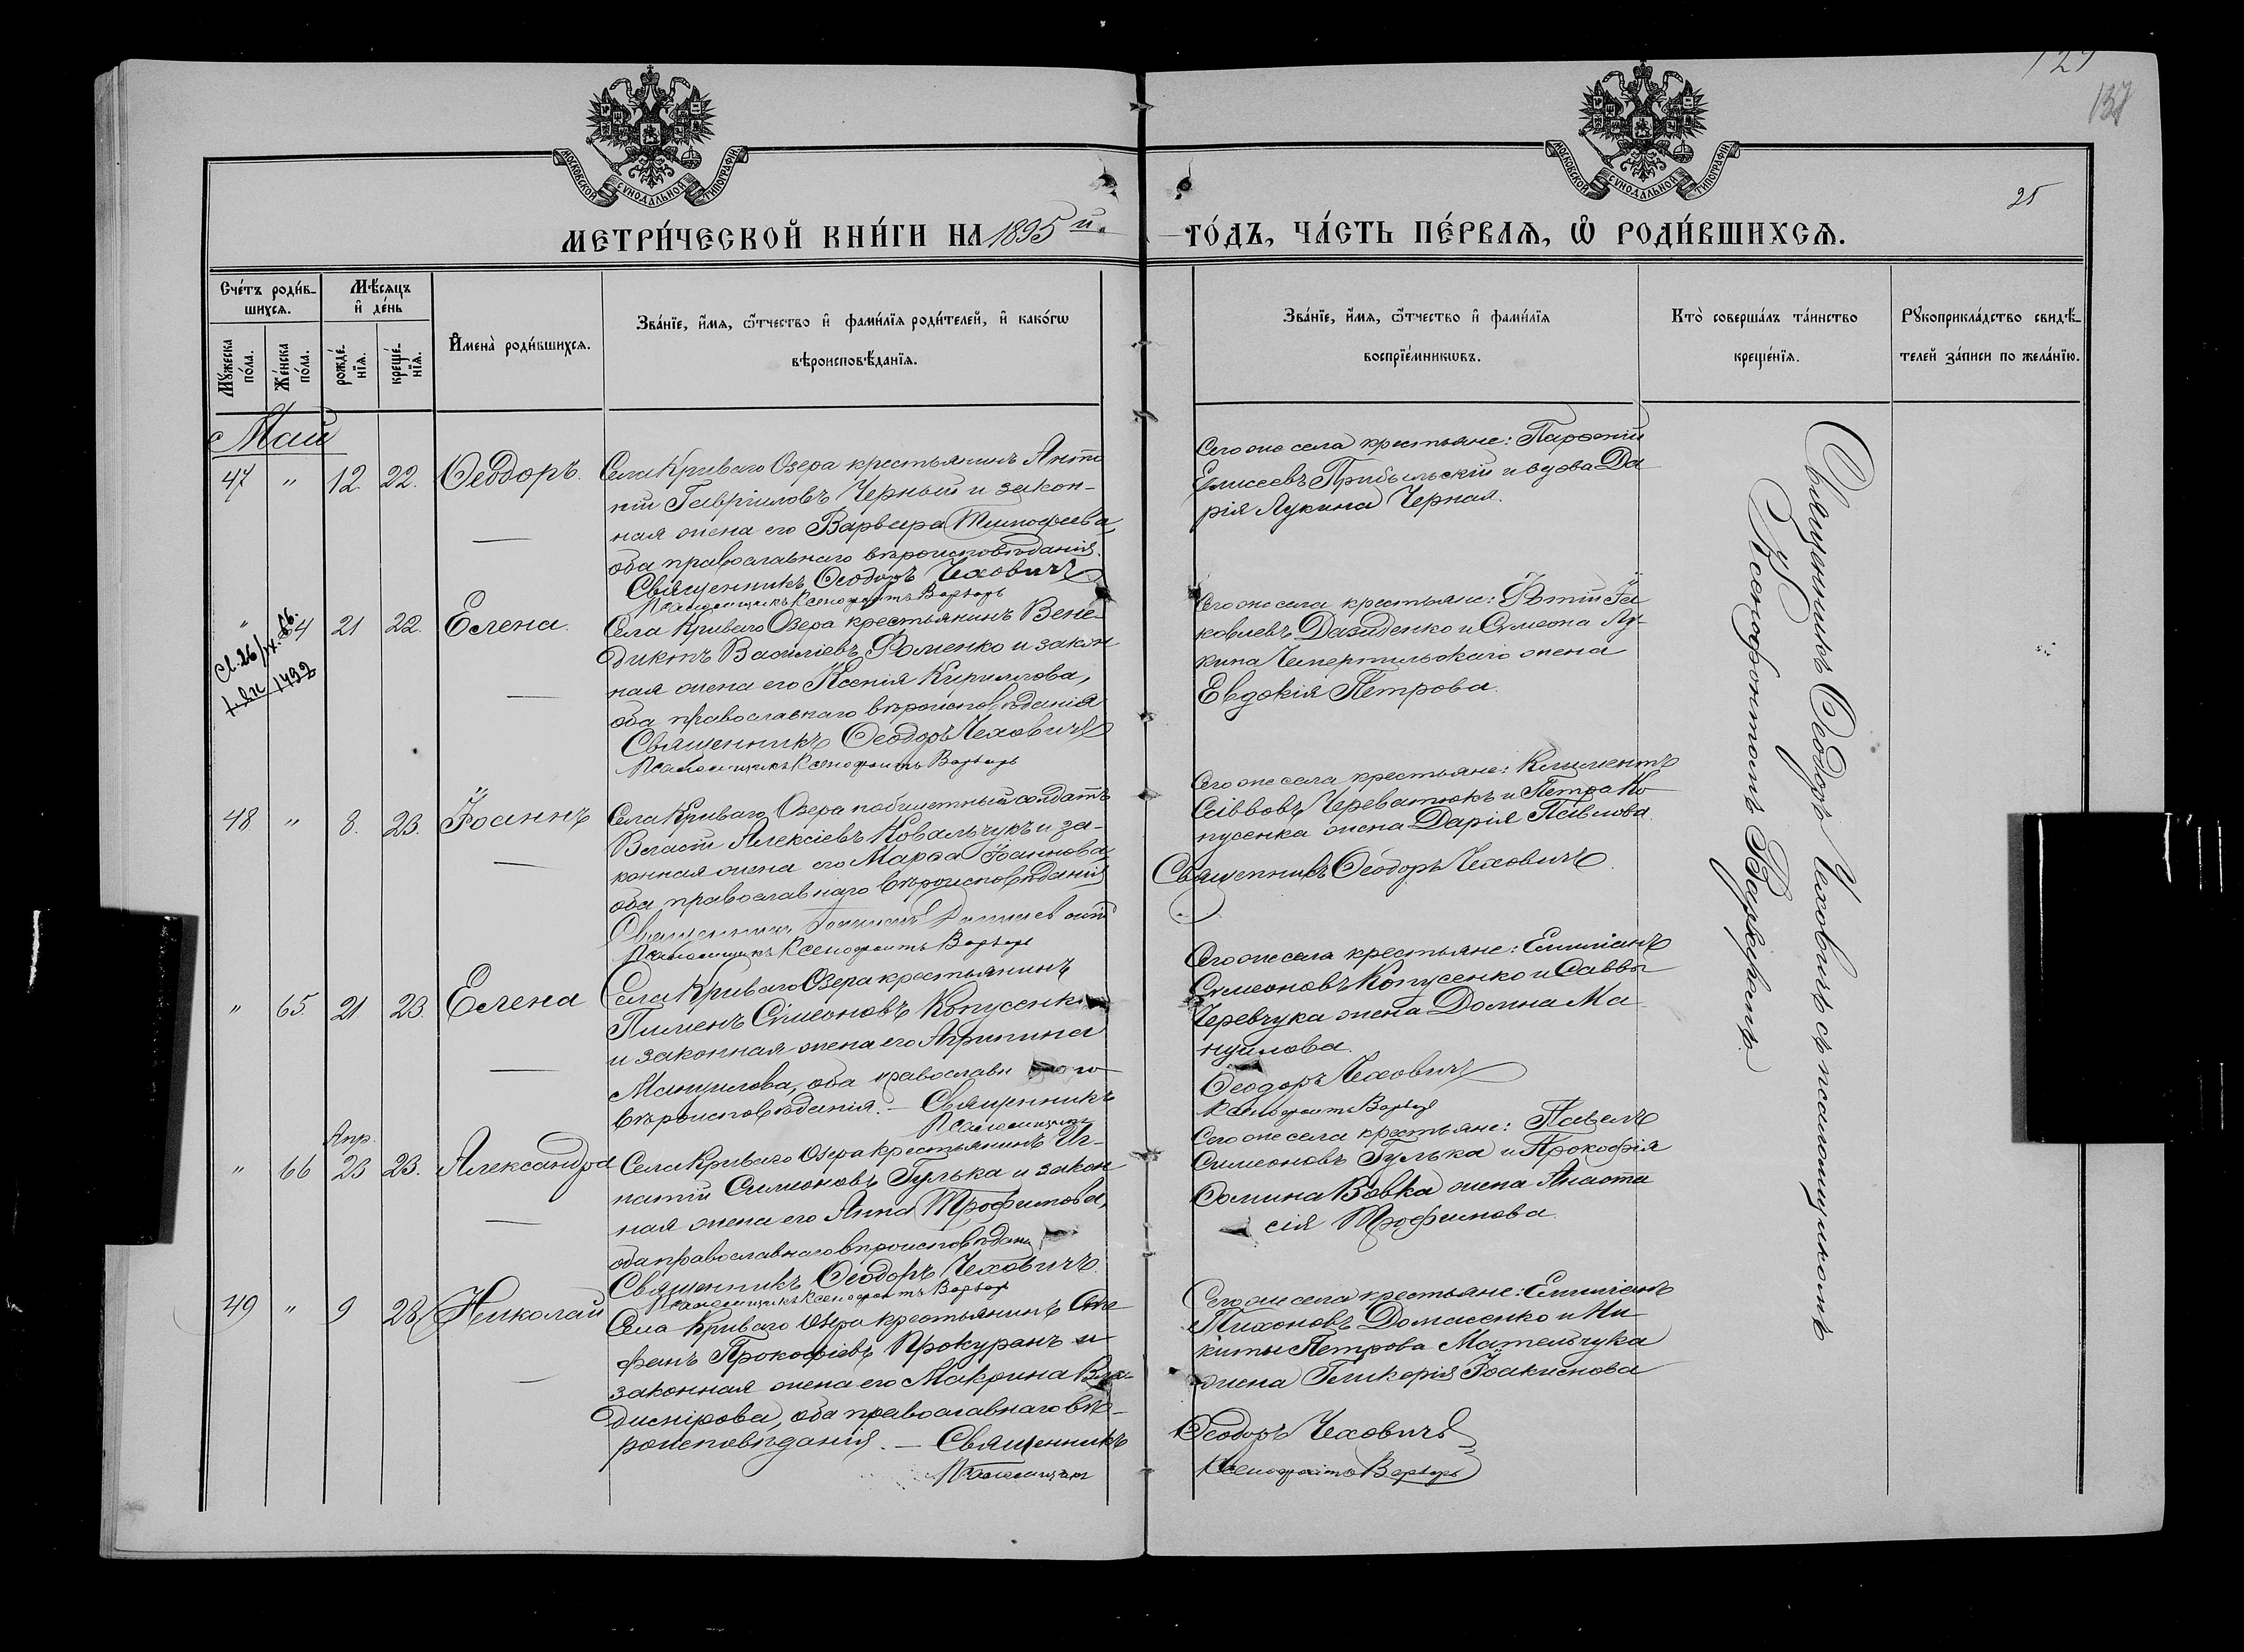 129
137
25
МОСКОВСКОЙ СѴНОДАЛЬНОЙ ТИПОГРАФІИ
МОСКОВСКОЙ СѴНОДАЛЬНОЙ ТИПОГРАФІИ
МЕТРИ́ЧЕСКОЙ КНИ́ГИ НА 1895й.
ГО́ДЪ, ЧА́СТЬ ПЕ́РВАѦ, Ѡ҆ РОДИ́ВШИХСѦ.
Сче́тъ роди́вшихсѧ.
Мꙋ́жеска по́ла.
Же́нска по́ла.
Мѣ́сѧцъ и҆ де́нь
рожде́нїѧ.
креще́нїѧ.
И҆мена̀ роди́вшихсѧ.
Зва́нїе, и҆́мѧ, ѻ҆́тчество и҆ фами́лїѧ роди́телей, и҆ како́гѡ
вѣроисповѣ́данїѧ.
Зва́нїе, и҆́мѧ, ѻ҆́тчество и҆ фами́лїѧ
воспрїе́мникѡвъ.
Кто̀ соверша́лъ та́инство
креще́нїѧ.
Рꙋкоприкла́дство свидѣ́-
телей за́писи по жела́нїю.
Май
47 " 12. 22. Ѳеодоръ.
Села Криваго Озера крестьянинъ Анто
ній Гавріиловъ Черный и закон-
ная жена его Варвара Тимоѳеева,
оба православнаго вѣроисповѣданія.
Священникъ Ѳеодоръ Чеховичъ
Псаломщикъ Ксенофонтъ Варваръ
Сего же села крестьяне: Парѳеній
Елисеевъ Прибыльскій и вдова Да
рія Лукина Черная.
" 64 21 22. Елена.
Села Криваго Озера крестьянинъ Вене-
диктъ Василіевъ Фоменко и закон
ная жена его Ксенія Кириллова,
оба православнаго вѣроисповѣданія
Священникъ Ѳеодоръ Чеховичъ
Псаломщикъ Ксенофонтъ Варваръ
Сего же села крестьяне: Фотій Іа
ковлевъ Давиденко и Сѵмеона Лу-
кина жена
Евдокія Петрова.
48 " 8. 23. Іоаннъ
Села Криваго Озера побилетный солдатъ
Власій Алексіевъ Ковальчукъ и за-
конная жена его Марѳа Іоаннова,
оба православнаго вѣроисповѣданія
Священникъ
Псаломщикъ Ксенофонтъ Варваръ
Сего же села крестьяне: Климентъ
Саввовъ Череватюкъ и Петра Ко
пусенка жена Дарія Павлова.
Священникъ Ѳеодоръ Чеховичъ.
" 65. 21 23. Елена
Села Криваго Озера крестьянинъ
Пименъ Сѵмеоновъ Копусенко
и законная жена его Агрипина
Мануилова, оба православнаго
вѣроисповѣданія. — Священникъ
Псаломщикъ
Сего же села крестьяне: Емиліанъ
Сѵмеоновъ Копусенко и Саввы
Черевчука жена Домна Ма
нуилова.
Ѳеодоръ Чеховичъ
Ксенофонтъ Варваръ
Апр.
" 66 23 23. Александра
Села Криваго Озера крестьянинъ Иг-
натій Симеоновъ Гулька и закон
ная жена его Анна Трофимова,
оба православнаго вѣроисповѣдані
Священникъ Ѳеодоръ Чеховичъ.
Псаломщикъ Ксенофонтъ Варваръ
Сего же села крестьяне: Павелъ
Симеоновъ Гулька и Прокофія
Фомина Вовка жена Анаста
сія Трофимова.
49 " 9 28. Николай
Села Криваго Озера крестьянинъ Сте
фанъ Прокофіевъ Прокуранъ и
законная жена его Макрина Вла-
димірова, оба православнаго вѣ-
роисповѣданія. — Священникъ
Псаломщикъ
Сего же села крестьяне: Емиліанъ
Тихоновъ Домасенко и Ни-
киты Петрова Мательчука
жена Гликерія Іоакимова
Ѳеодоръ Чеховичъ
Ксенофонтъ Варваръ
Священникъ Ѳеодоръ Чеховичъ съ псаломщикомъ
Ксенофонтомъ Варваромъ.